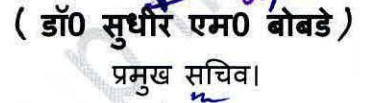 ( डॉ0 सुधीर एम0 बोबडे )
प्रमुख सचिव।